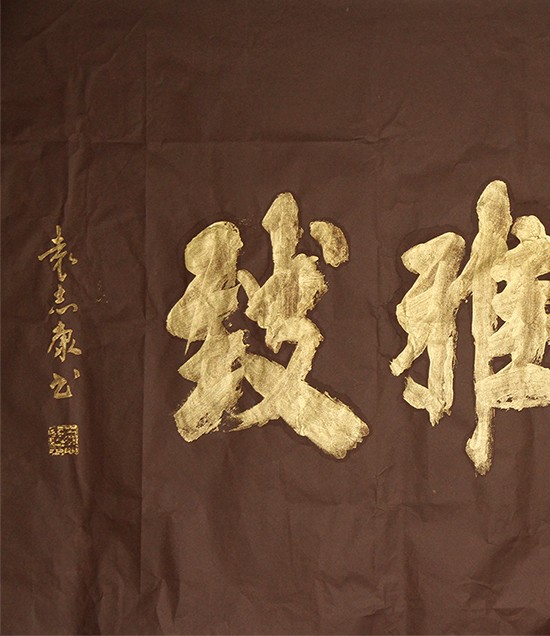 雅致
袁志康书